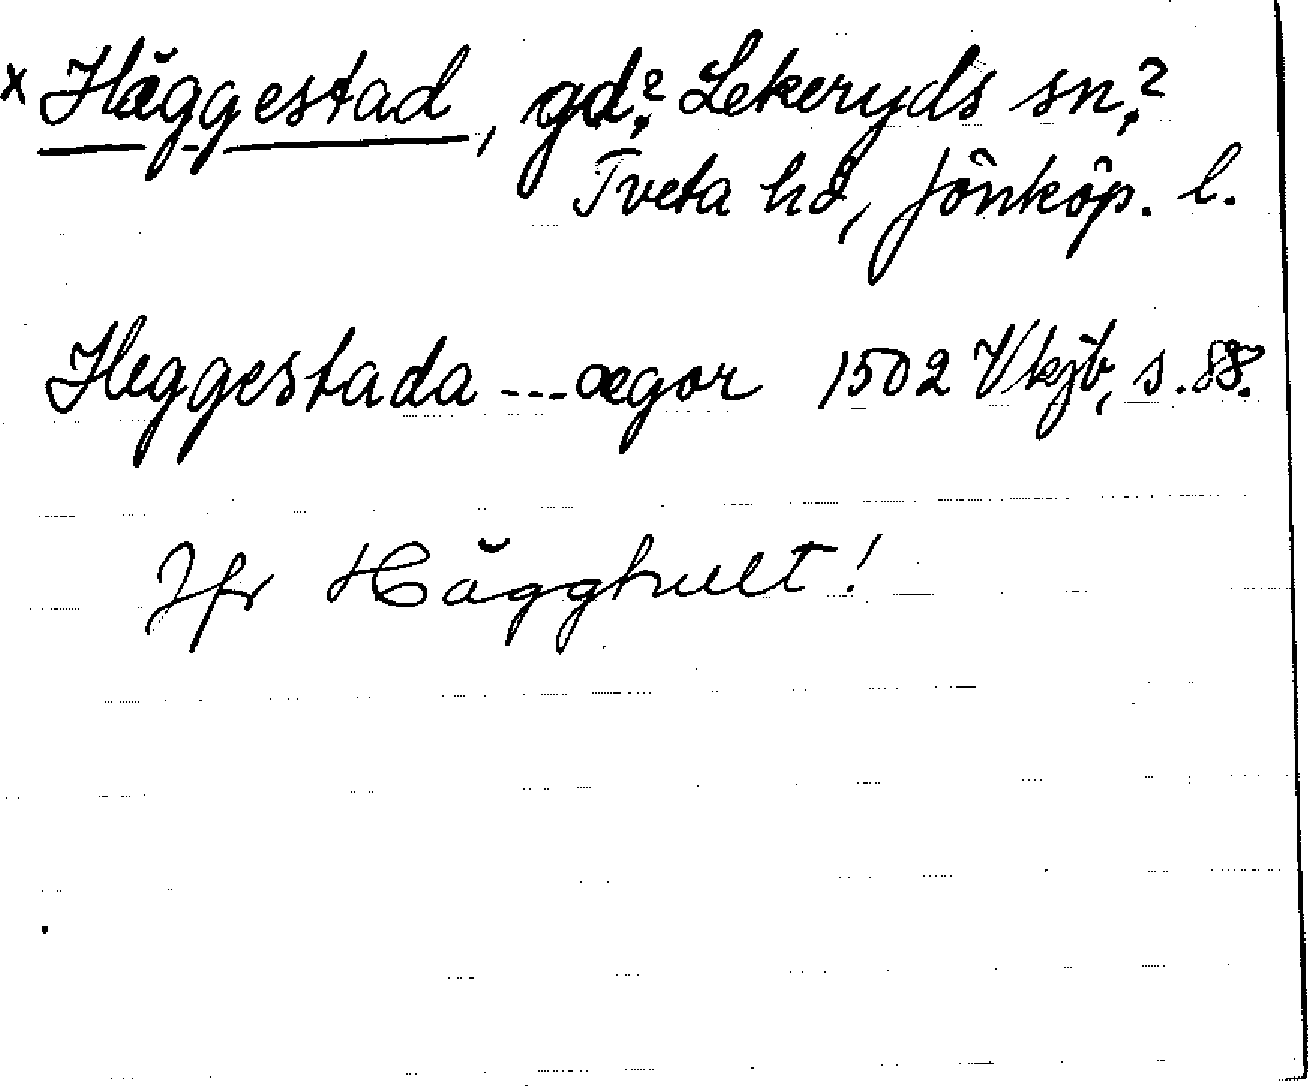 x Häggestad, gd? Lekeryds sn?
Tveta hd, Jönköp. l.
Heggestada --- ægor 1502 Vkjb, s. 88.
Jfr Hägghult!